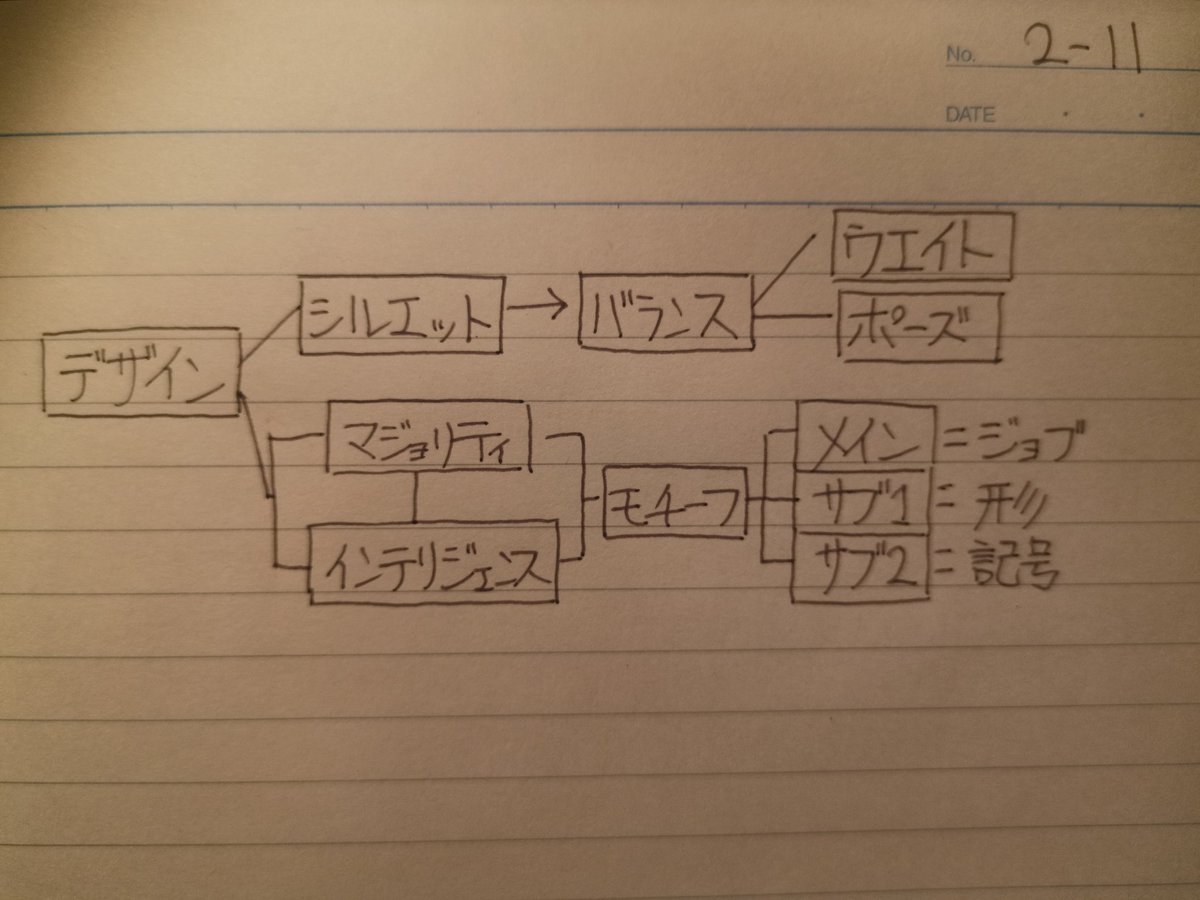 No. 2-11
DATE ・ ・
ウエイト
シルエット → バランス
ポーズ
デザイン
マジョリティ
メイン = ジョブ
モチーフ
サブ1 = 形
インテリジェンス
サブ2 = 記号